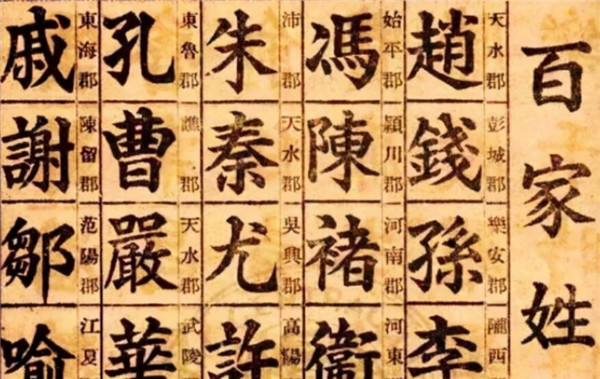 百家姓
天水郡 彭城郡 樂安郡 隴西
趙錢孫李
始平郡 潁川郡 河南郡 河東
馮陳褚衛
沛郡 天水郡 吳興郡 高陽
朱秦尤許
東魯郡 譙郡 天水郡 武陵
孔曹嚴華
東海郡 陳留郡 范陽郡 江夏
戚謝鄒喻